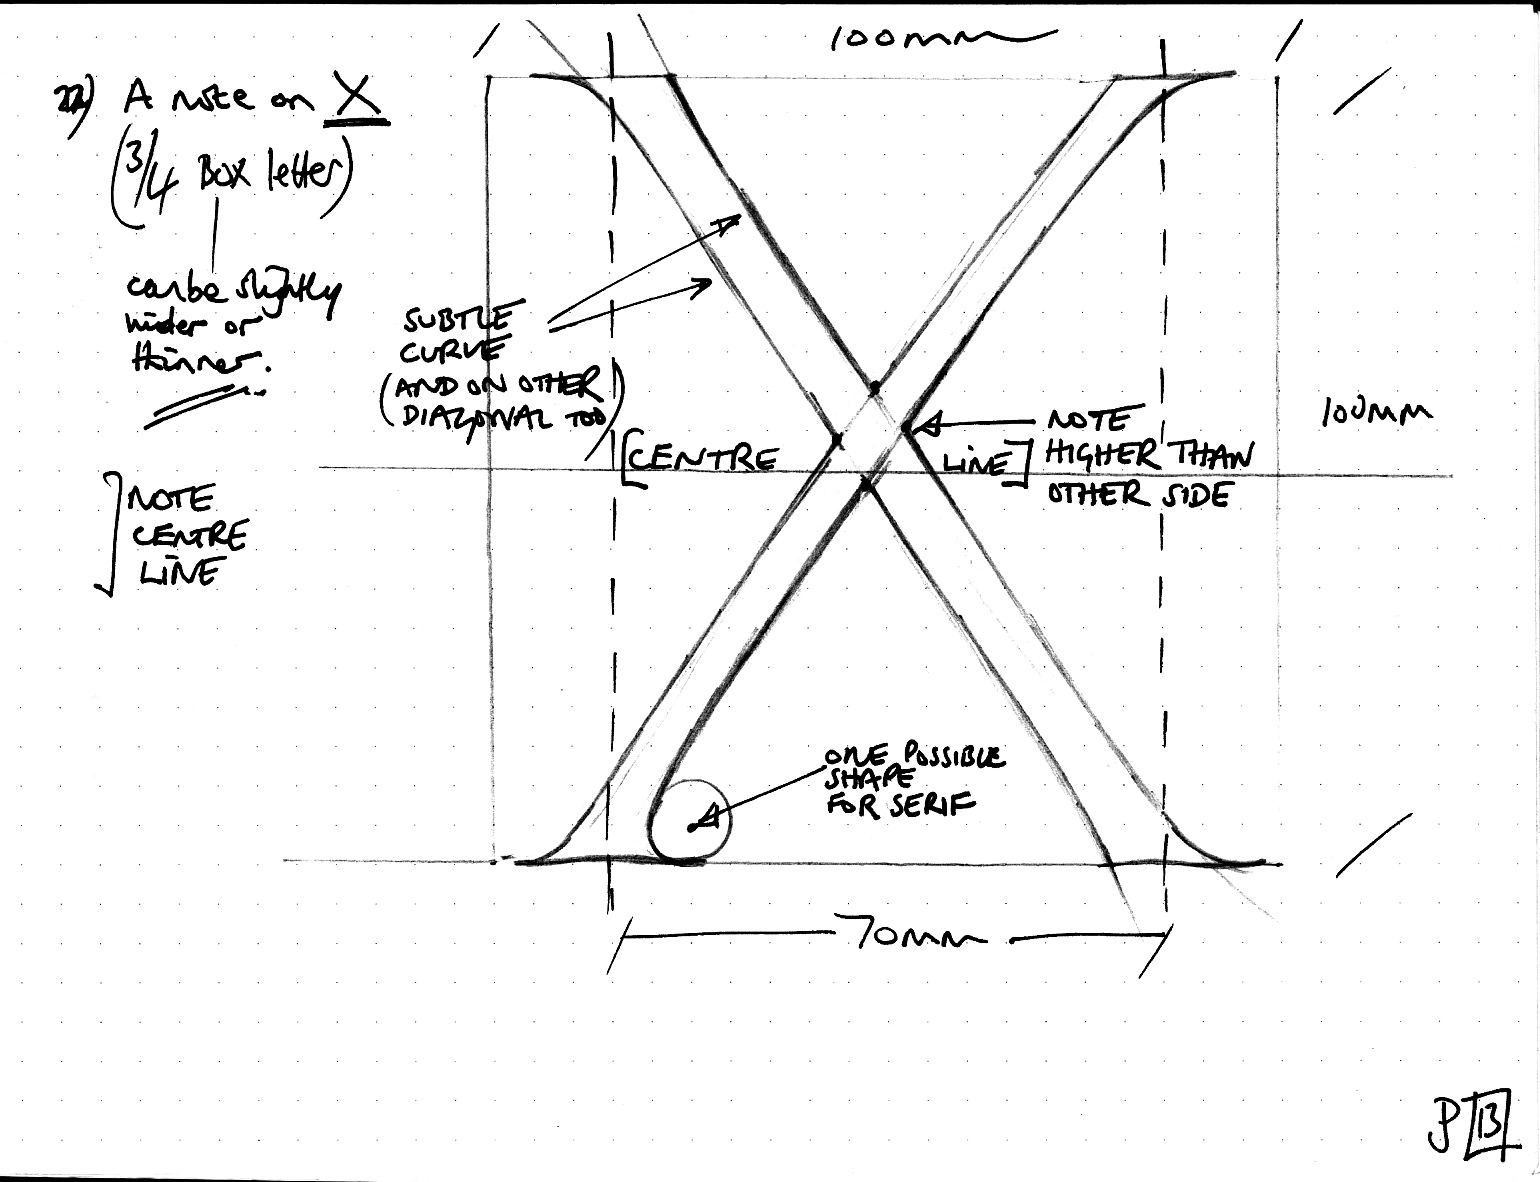 22) A note on X
(3/4 Box letter)
can be slightly
wider or
thinner.
NOTE
CENTRE
LINE
100mm
SUBTLE
CURVE
(AND ON OTHER
DIAGONAL TOO)
[CENTRE
LINE]
NOTE
HIGHER THAN
OTHER SIDE
100mm
ONE POSSIBLE
SHAPE
FOR SERIF
70mm
P 13